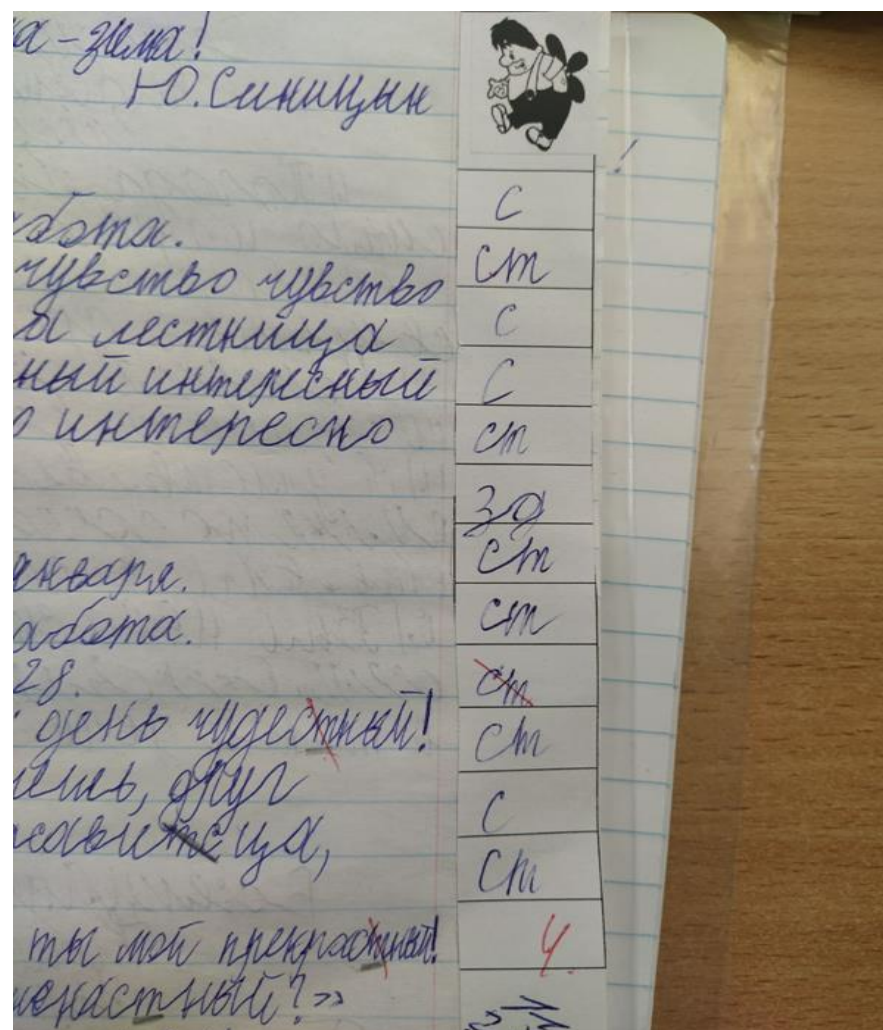 а-зима!
Ю.Синицын
абота.
чувство чувство
а лестница
ный интересный
о интересно
января.
абота.
28.
день чудестный!
друг
ты мой прекрастный!
ненастный?»
с
ст
с
с
ст
зд
ст
ст
ст
ст
с
ст
4.